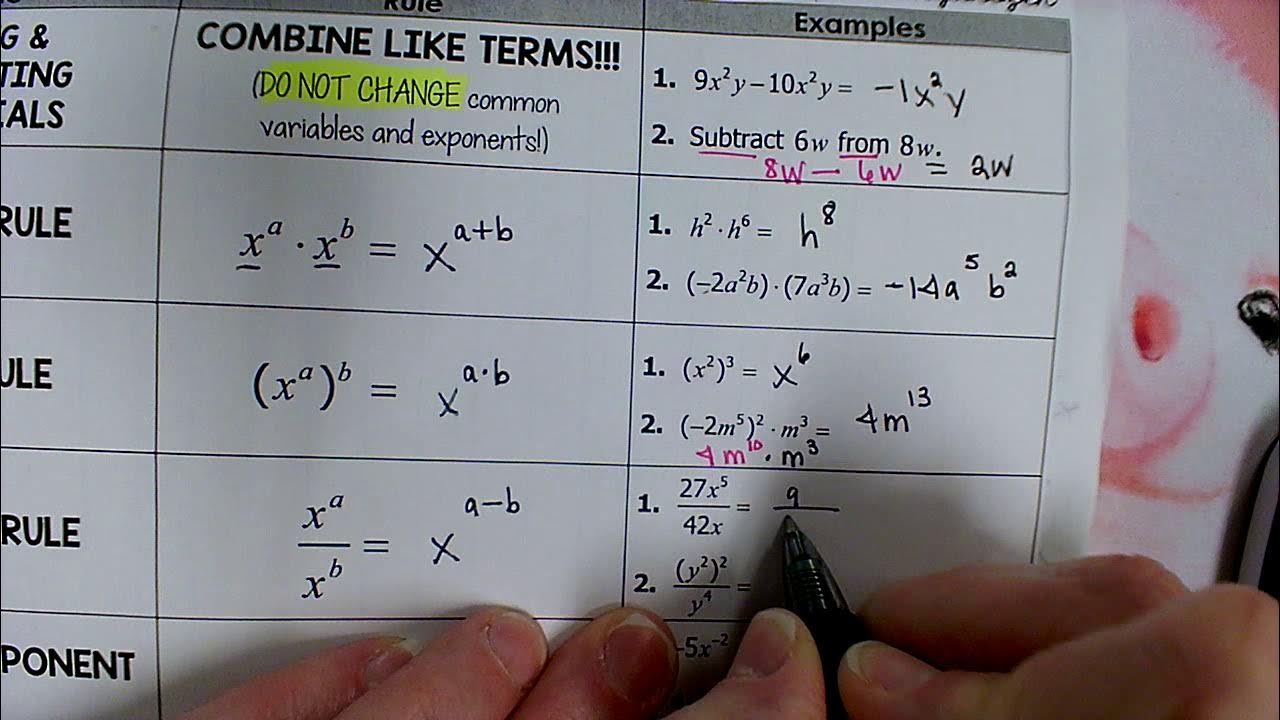 Rule
Examples
G &
TING
IALS
COMBINE LIKE TERMS!!!
(DO NOT CHANGE common
variables and exponents!)
1. 9x²y – 10x²y = -1x²y
2. Subtract 6w from 8w.
8w — 6w = 2w
RULE
xᵃ · xᵇ = x^(a+b)
1. h² · h⁶ = h⁸
2. (–2a²b) · (7a³b) = -14a⁵b²
ULE
(xᵃ)ᵇ = x^(a·b)
1. (x²)³ = x⁶
2. (–2m⁵)² · m³ = 4m¹³
4m¹⁰ · m³
RULE
xᵃ/xᵇ = x^(a-b)
1. 27x⁵/42x = 9/
2. (y²)²/y⁴ =
PONENT
-5x⁻²